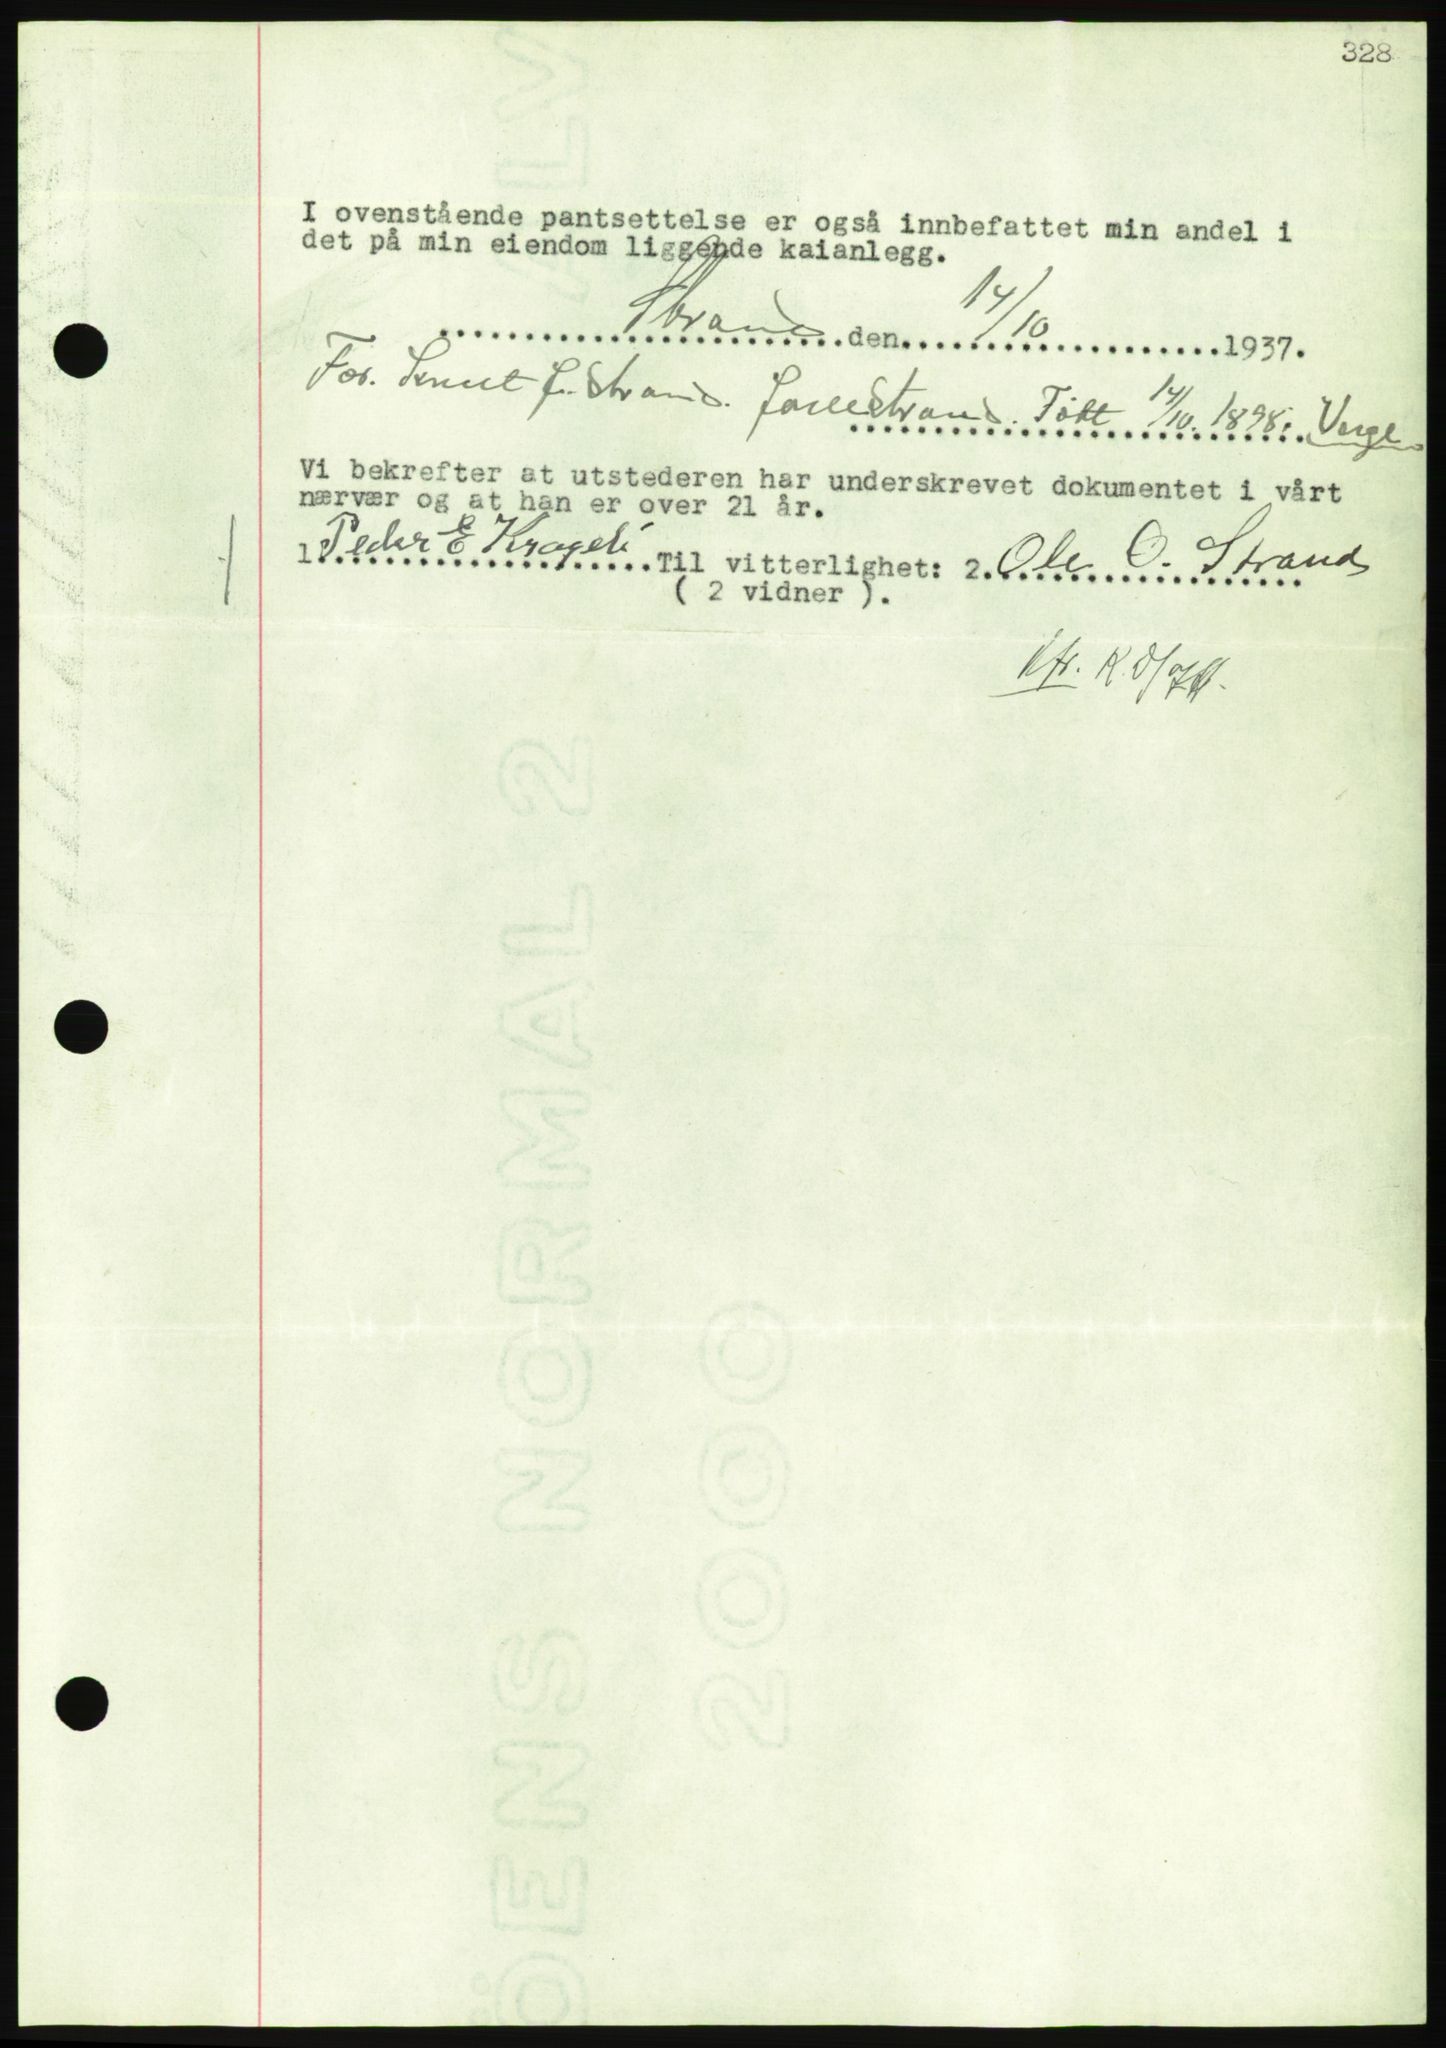 328
I ovenstående pantsettelse er også innbefattet min andel i
det på min eiendom liggende kaianlegg.
Strand den 14/10 1937.
For. Knut J. Strand. Strand. Født 14/10. 1898. Verge
Vi bekrefter at utstederen har underskrevet dokumentet i vårt
nærvær og at han er over 21 år.
1 Peder E Til vitterlighet: 2. Ole O. Strand
( 2 vidner ).
Kfr.
ÖENS NORMAL 2
2000